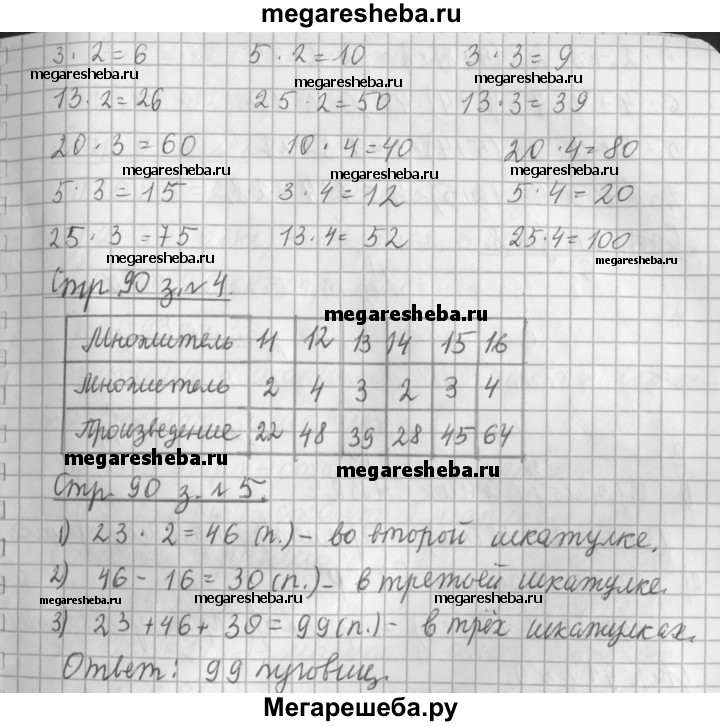 megaresheba.ru
3 · 2 = 6 5 · 2 = 10 3 · 3 = 9
megaresheba.ru megaresheba.ru megaresheba.ru
13 · 2 = 26 25 · 2 = 50 13 · 3 = 39
20 · 3 = 60 10 · 4 = 40 20 · 4 = 80
megaresheba.ru megaresheba.ru
5 · 3 = 15 3 · 4 = 12 5 · 4 = 20
25 · 3 = 75 13 · 4 = 52 25 · 4 = 100
megaresheba.ru
Стр. 90 з. № 4.
megaresheba.ru
Множитель 11 12 13 14 15 16
Множитель 2 4 3 2 3 4
Произведение 22 48 39 28 45 64
megaresheba.ru megaresheba.ru
Стр. 90 з. № 5.
1) 23 · 2 = 46 (п.) – во второй шкатулке.
2) 46 - 16 = 30 (п.) – в третьей шкатулке.
megaresheba.ru megaresheba.ru megaresheba.ru
3) 23 + 46 + 30 = 99 (п.) – в трёх шкатулках.
Ответ: 99 пуговиц.
Мегарешеба.ру